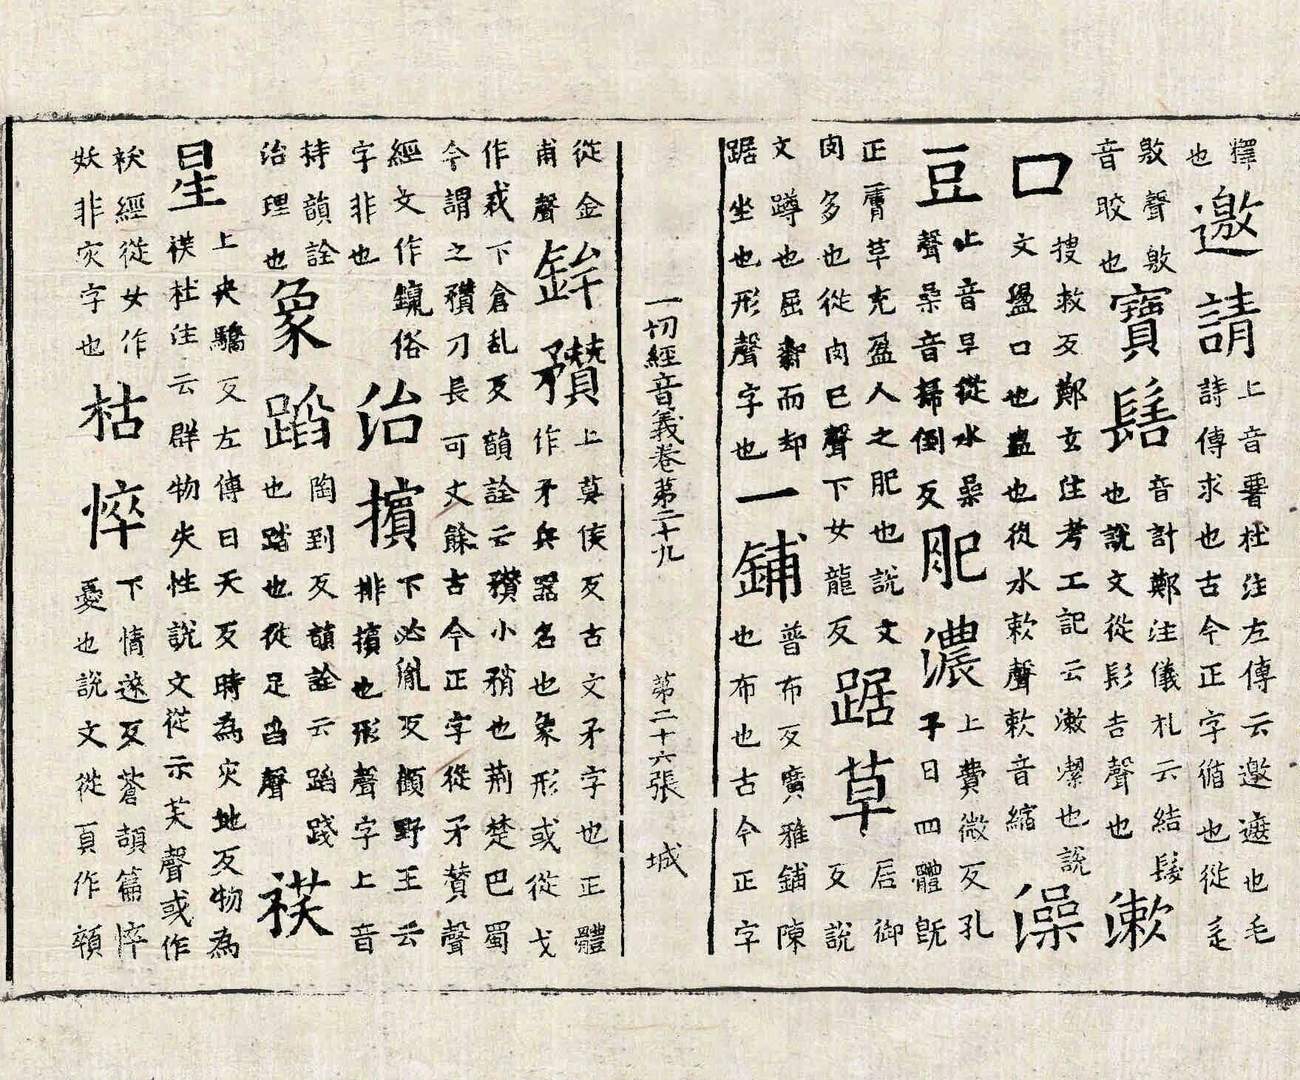 釋
也
邀請
上音署杜注左傳云邀遮也毛
詩傳求也古今正字循也從辵
敫聲敫
音晈也
寶髻
音計鄭注儀礼云結髮
也說文從髟吉聲也
漱
口
搜救反鄭玄注考工記云漱潔也說
文盪口也盪也從水欶聲欶音縮
澡
豆
上音早從水喿
聲喿音掃倒反
肥濃
上費微反孔
子曰四體旣
正膚草充盈人之肥也說文
肉多也從肉巳聲下女龍反
踞草
居御
反說
文蹲也屈而却
踞坐也形聲字也
一鋪
普布反廣雅鋪陳
也布也古今正字
一切經音義卷第二十九 第二十六張 城
從金
甫聲
鉾䂎
上莫侯反古文矛字也正體
作矛兵器名也象形或從戈
作下倉乱反韻詮云䂎小矟也荊楚巴蜀
今謂之䂎刀長可丈餘古今正字從矛贊聲
經文作鑹俗
字非也
治擯
下必胤反顧野王云
排擯也形聲字上音
持韻詮
治理也
象蹈
陶到反韻詮云蹈踐
也踏也從足舀聲
䄏
星
上夭驕反左傳曰天反時為灾地反物為
䄏杜注云群物失性說文從示芺聲或作
祅經從女作
妖非灾字也
枯悴
下情遂反蒼頡篇悴
憂也說文從頁作顇